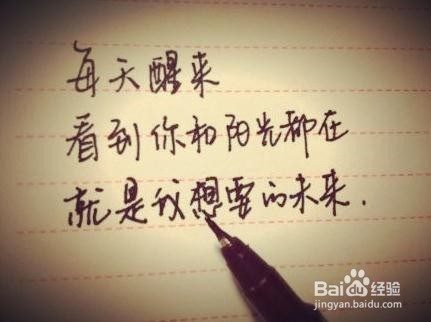 每天醒来
看到你和阳光都在
就是我想要的未来.
Baidu经验
jingyan.baidu.com